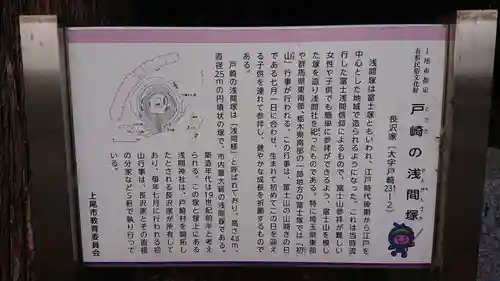 上尾市指定
有形民俗文化財
戸崎の浅間塚
とざき せんげんづか
長沢家 [大字戸崎231-2]
浅間塚は富士塚ともいわれ、江戸時代後期から江戸を
中心とした地域で造られるようになった。これは当時流
行した富士浅間信仰によるもので、富士山参拝が難しい
女性や子供でも簡単に参拝ができるよう、富士山を模し
た塚を造り浅間社を祀ったものである。特に埼玉県東部
や群馬県東南部、栃木県南部の一部地方の富士塚では「初
山」行事が行われる。この行事は、富士山の山開きの日
である七月一日に合わせ、生まれて初めてこの日を迎え
る子供を連れて参拝し、健やかな成長を祈願するもので
ある。
戸崎の浅間塚は「浅間様」と呼ばれており、高さ4.6m、
直径25mの円墳状の塚で、市内最大級の浅間塚である。
築造年代は19世紀前半と考え
られる。この塚と塚上にある
浅間神社は、戸崎村を開拓し
たとされる長沢家が所有して
おり、毎年七月に行われる初
山行事は、長沢家とその直接
の分家など5軒で執り行って
いる。
上尾市教育委員会